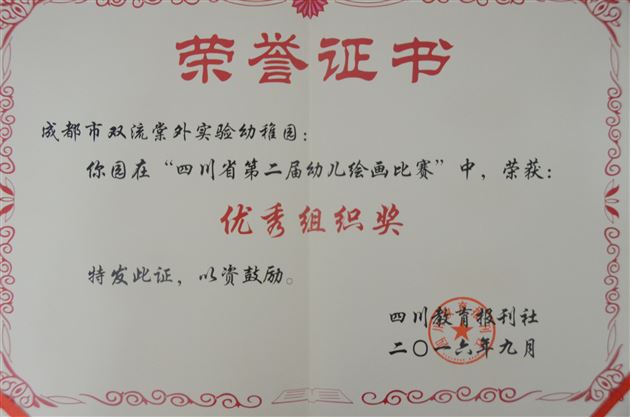 荣誉证书
成都市双流棠外实验幼稚园：
你园在“四川省第二届幼儿绘画比赛”中，荣获：
优秀组织奖
特发此证，以资鼓励。
四川教育报刊社
二〇一六年九月